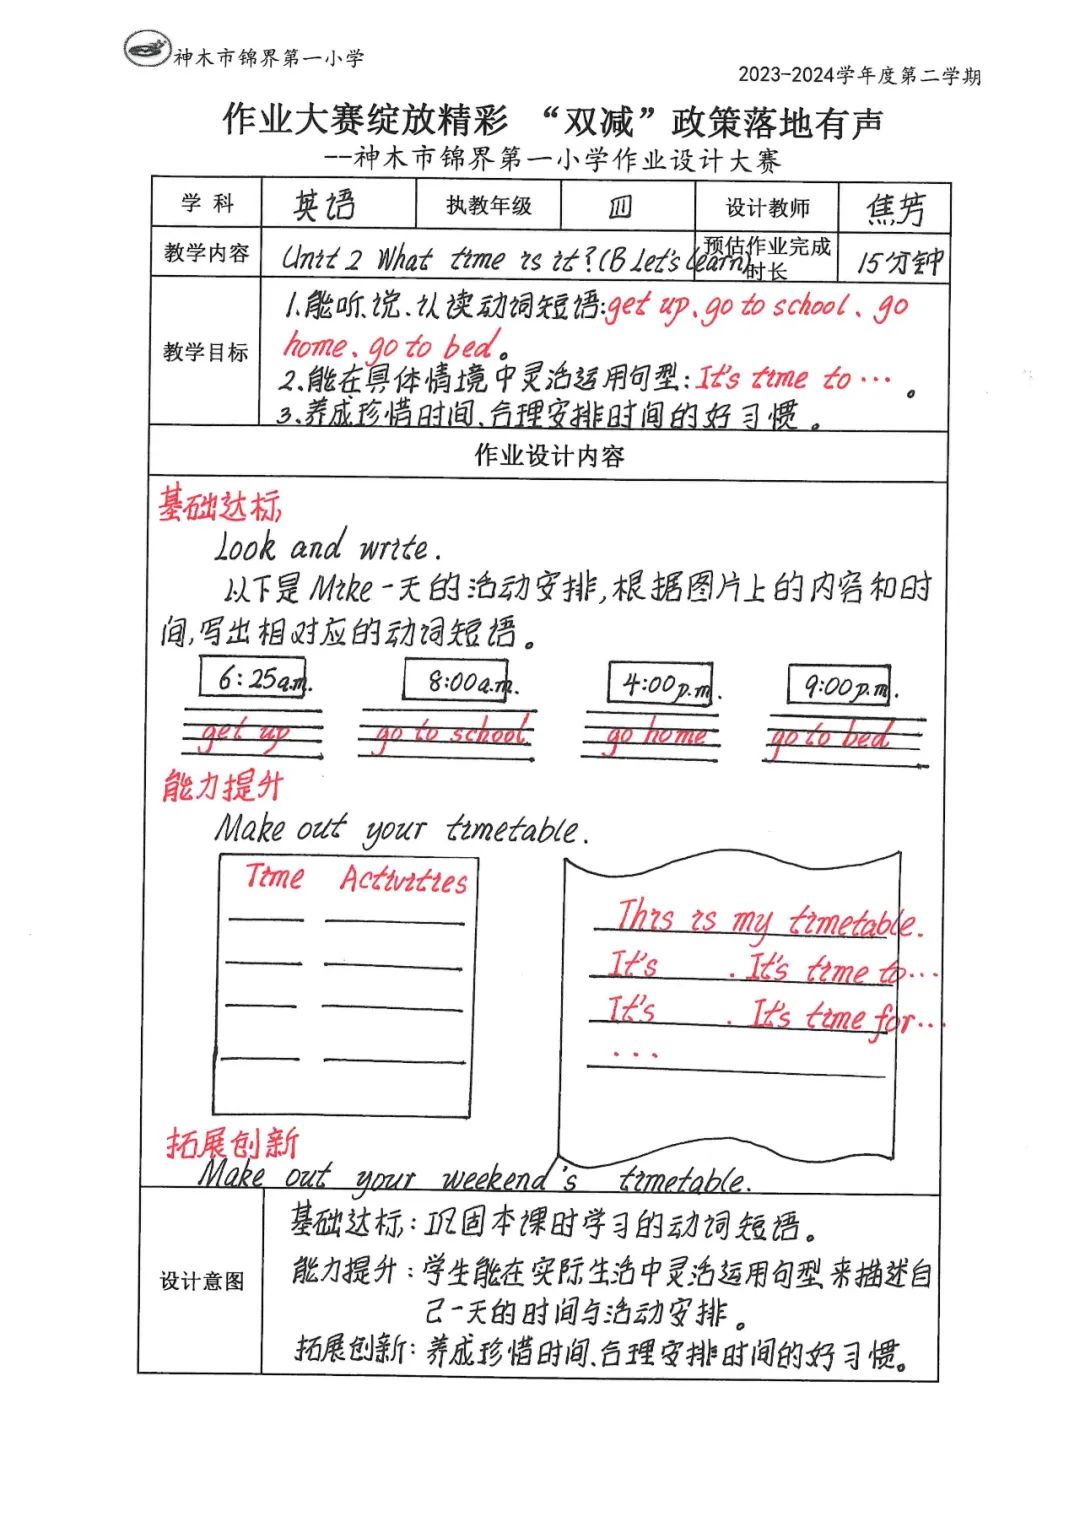 神木市锦界第一小学
2023-2024学年度第二学期
作业大赛绽放精彩 “双减”政策落地有声
--神木市锦界第一小学作业设计大赛
学 科 英语 执教年级 四 设计教师 焦芳
教学内容 Unit 2 What time is it?(B Let's learn) 预估作业完成时长 15分钟
教学目标
1.能听、说、认读动词短语:get up、go to school、go
home、go to bed。
2.能在具体情境中灵活运用句型:It's time to…。
3.养成珍惜时间、合理安排时间的好习惯。
作业设计内容
基础达标
Look and write.
以下是Mike一天的活动安排,根据图片上的内容和时
间,写出相对应的动词短语。
6:25a.m. 8:00a.m. 4:00p.m. 9:00p.m.
get up go to school go home go to bed
能力提升
Make out your timetable.
Time Activities
This is my timetable.
It's . It's time to…
It's . It's time for…
...
拓展创新
Make out your weekend's timetable.
设计意图
基础达标:巩固本课时学习的动词短语。
能力提升:学生能在实际生活中灵活运用句型来描述自
己一天的时间与活动安排。
拓展创新:养成珍惜时间、合理安排时间的好习惯。